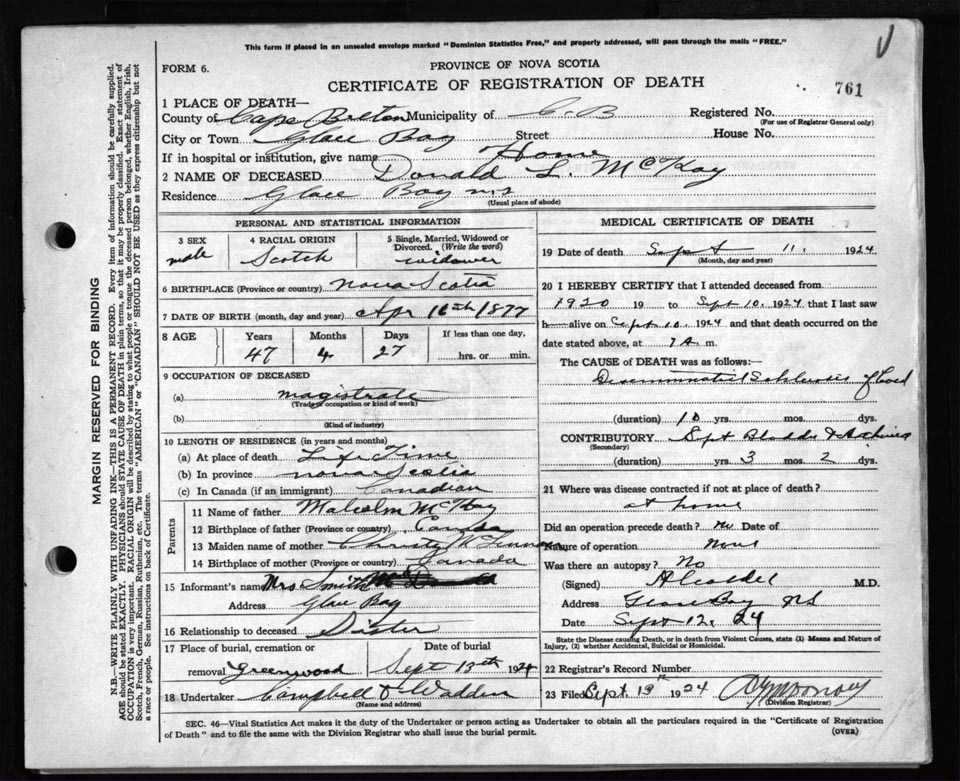 This form if placed in an unsealed envelope marked "Dominion Statistics Free," and properly addressed, will pass through the mails "FREE."
FORM 6.
PROVINCE OF NOVA SCOTIA
CERTIFICATE OF REGISTRATION OF DEATH
761
1 PLACE OF DEATH—
County of Cape Breton Municipality of C.B Registered No.
(For use of Registrar General only)
City or Town Glace Bay Street House No.
If in hospital or institution, give name Home
2 NAME OF DECEASED Donald L. McKay
Residence Glace Bay ns
(Usual place of abode)
MARGIN RESERVED FOR BINDING
N.B.—WRITE PLAINLY WITH UNFADING INK—THIS IS A PERMANENT RECORD. Every item of information should be carefully supplied.
AGE should be stated EXACTLY. PHYSICIANS should STATE CAUSE OF DEATH in plain terms, so that it may be properly classified. Exact statement of
OCCUPATION is very important. RACIAL ORIGIN will be described by stating to what people or tongue the deceased person belonged, whether English, Irish,
Scotch, French, German, Russian, Ruthenian, etc. The terms "AMERICAN" or "CANADIAN" SHOULD NOT BE USED as they express citizenship but not
a race or people. See instructions on back of Certificate.
PERSONAL AND STATISTICAL INFORMATION
3 SEX
male
4 RACIAL ORIGIN
Scotch
5 Single, Married, Widowed or
Divorced. (Write the word)
widower
6 BIRTHPLACE (Province or country) Nova Scotia
7 DATE OF BIRTH (month, day and year) Apr 16th 1877
8 AGE
Years
47
Months
4
Days
27
If less than one day,
hrs. or min.
9 OCCUPATION OF DECEASED
(a) magistrate
(Trade, occupation or kind of work)
(b)
(Kind of industry)
10 LENGTH OF RESIDENCE (in years and months)
(a) At place of death Life Time
(b) In province nova Scotia
(c) In Canada (if an immigrant) Canadian
Parents
11 Name of father Malcolm McKay
12 Birthplace of father (Province or country) Canada
13 Maiden name of mother Christy McLennan
14 Birthplace of mother (Province or country) Canada
15 Informant's name Mrs Smith
Address Glace Bay
16 Relationship to deceased Sister
17 Place of burial, cremation or
removal Greenwood
Date of burial
Sept 13th 1924
18 Undertaker Campbell & Wadden
(Name and address)
MEDICAL CERTIFICATE OF DEATH
19 Date of death Sept 11. 1924
(Month, day and year)
20 I HEREBY CERTIFY that I attended deceased from
1920 19 to Sept 10. 1924 that I last saw
h alive on Sept 10. 1924 and that death occurred on the
date stated above, at 7 A m.
The CAUSE of DEATH was as follows:
(duration) 10 yrs. mos. dys.
CONTRIBUTORY
(Secondary)
(duration) yrs. 3 mos. 2 dys.
21 Where was disease contracted if not at place of death?
at home
Did an operation precede death? no Date of
Nature of operation none
Was there an autopsy? No
(Signed) M.D.
Address Glace Bay NS
Date Sept 12. 24
State the Disease causing Death, or in death from Violent Causes, state (1) Means and Nature of
Injury, (2) whether Accidental, Suicidal or Homicidal.
22 Registrar's Record Number
23 Filed Sept 13th 1924
(Division Registrar)
SEC. 46—Vital Statistics Act makes it the duty of the Undertaker or person acting as Undertaker to obtain all the particulars required in the "Certificate of Registration
of Death" and to file the same with the Division Registrar who shall issue the burial permit.
(OVER)